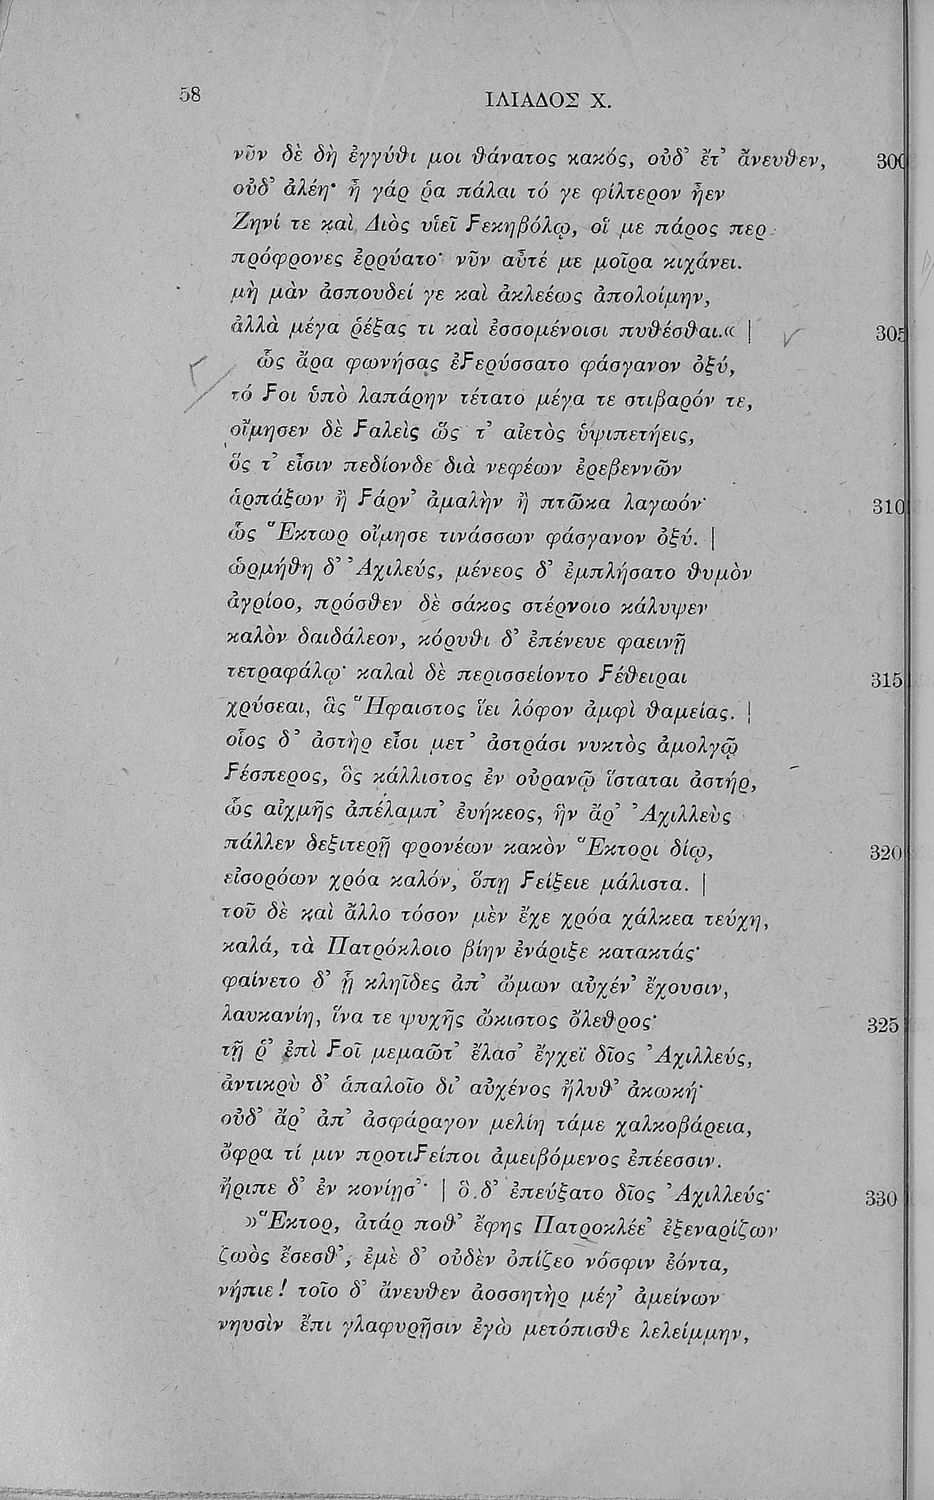 58
ΙΛΙΑΔΟΣ Χ.
νῦν δὲ δὴ ἐγγύθι μοι θάνατος κακός, οὐδ' ἔτ' ἄνευθεν, 300
οὐδ' ἀλέη· ἦ γάρ ῥα πάλαι τό γε φίλτερον ἦεν
Ζηνί τε καὶ Διὸς υἱεῖ Ϝεκηβόλῳ, οἵ με πάρος περ
πρόφρονες ἐρρύατο· νῦν αὖτέ με μοῖρα κιχάνει.
μὴ μὰν ἀσπουδεί γε καὶ ἀκλεέως ἀπολοίμην,
ἀλλὰ μέγα ῥέξας τι καὶ ἐσσομένοισι πυθέσθαι.« | 305
ὣς ἄρα φωνήσας ἐϜερύσσατο φάσγανον ὀξύ,
τό Ϝοι ὑπὸ λαπάρην τέτατο μέγα τε στιβαρόν τε,
οἴμησεν δὲ Ϝαλεὶς ὥς τ' αἰετὸς ὑψιπετήεις,
ὅς τ' εἶσιν πεδίονδε διὰ νεφέων ἐρεβεννῶν
ἁρπάξων ἢ Ϝάρν' ἀμαλὴν ἢ πτῶκα λαγωόν· 310
ὣς Ἕκτωρ οἴμησε τινάσσων φάσγανον ὀξύ. |
ὡρμήθη δ' Ἀχιλεύς, μένεος δ' ἐμπλήσατο θυμὸν
ἀγρίοο, πρόσθεν δὲ σάκος στέρνοιο κάλυψεν
καλὸν δαιδάλεον, κόρυθι δ' ἐπένευε φαεινῇ
τετραφάλῳ· καλαὶ δὲ περισσείοντο Ϝέθειραι 315
χρύσεαι, ἃς Ἥφαιστος ἵει λόφον ἀμφὶ θαμείας. |
οἷος δ' ἀστὴρ εἶσι μετ' ἀστράσι νυκτὸς ἀμολγῷ
Ϝέσπερος, ὃς κάλλιστος ἐν οὐρανῷ ἵσταται ἀστήρ,
ὣς αἰχμῆς ἀπέλαμπ' ἐυήκεος, ἣν ἄρ' Ἀχιλλεὺς
πάλλεν δεξιτερῇ φρονέων κακὸν Ἕκτορι δίῳ, 320
εἰσορόων χρόα καλόν, ὅπῃ Ϝείξειε μάλιστα. |
τοῦ δὲ καὶ ἄλλο τόσον μὲν ἔχε χρόα χάλκεα τεύχη,
καλά, τὰ Πατρόκλοιο βίην ἐνάριξε κατακτάς·
φαίνετο δ' ᾗ κληῖδες ἀπ' ὤμων αὐχέν' ἔχουσιν,
λαυκανίην, ἵνα τε ψυχῆς ὤκιστος ὄλεθρος· 325
τῇ ῥ' ἐπὶ Ϝοῖ μεμαῶτ' ἔλασ' ἔγχεϊ δῖος Ἀχιλλεύς,
ἀντικρὺ δ' ἁπαλοῖο δι' αὐχένος ἤλυθ' ἀκωκή·
οὐδ' ἄρ' ἀπ' ἀσφάραγον μελίη τάμε χαλκοβάρεια,
ὄφρα τί μιν προτιϜείποι ἀμειβόμενος ἐπέεσσιν.
ἤριπε δ' ἐν κονίῃσ'· | ὃ δ' ἐπεύξατο δῖος Ἀχιλλεύς· 330
»Ἕκτορ, ἀτάρ ποθ' ἔφης Πατροκλέε' ἐξεναρίζων
ζωὸς ἔσεσθ', ἐμὲ δ' οὐδὲν ὀπίζεο νόσφιν ἐόντα,
νήπιε! τοῖο δ' ἄνευθεν ἀοσσητὴρ μέγ' ἀμείνων
νηυσὶν ἔπι γλαφυρῇσιν ἐγὼ μετόπισθε λελείμμην,